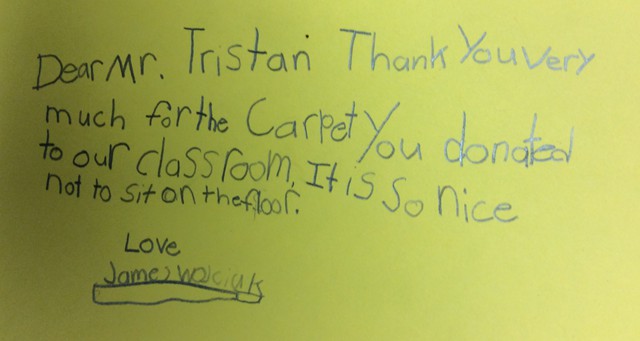 Dear Mr. Tristan Thank You very
much for the Carpet You donated
to our classroom. It is so nice
not to sit on the floor.
Love
James